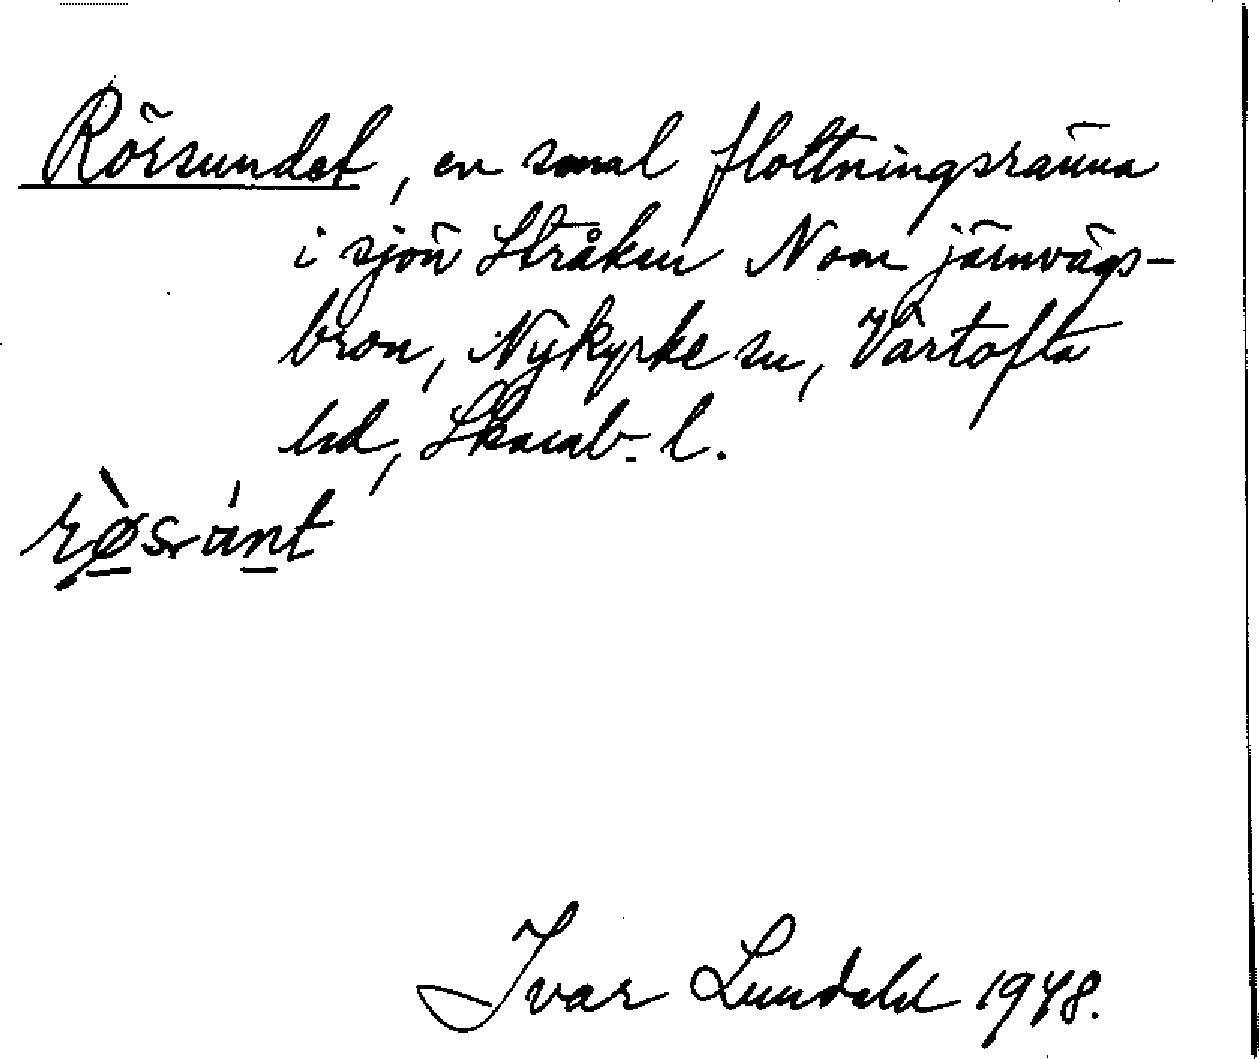 Rörsundet, en smal flottningsränna
i sjön Stråken N om järnvägs-
bron, Nykyrke sn, Vartofta
hd, Skarab. l.
Ivar Lundahl 1948.